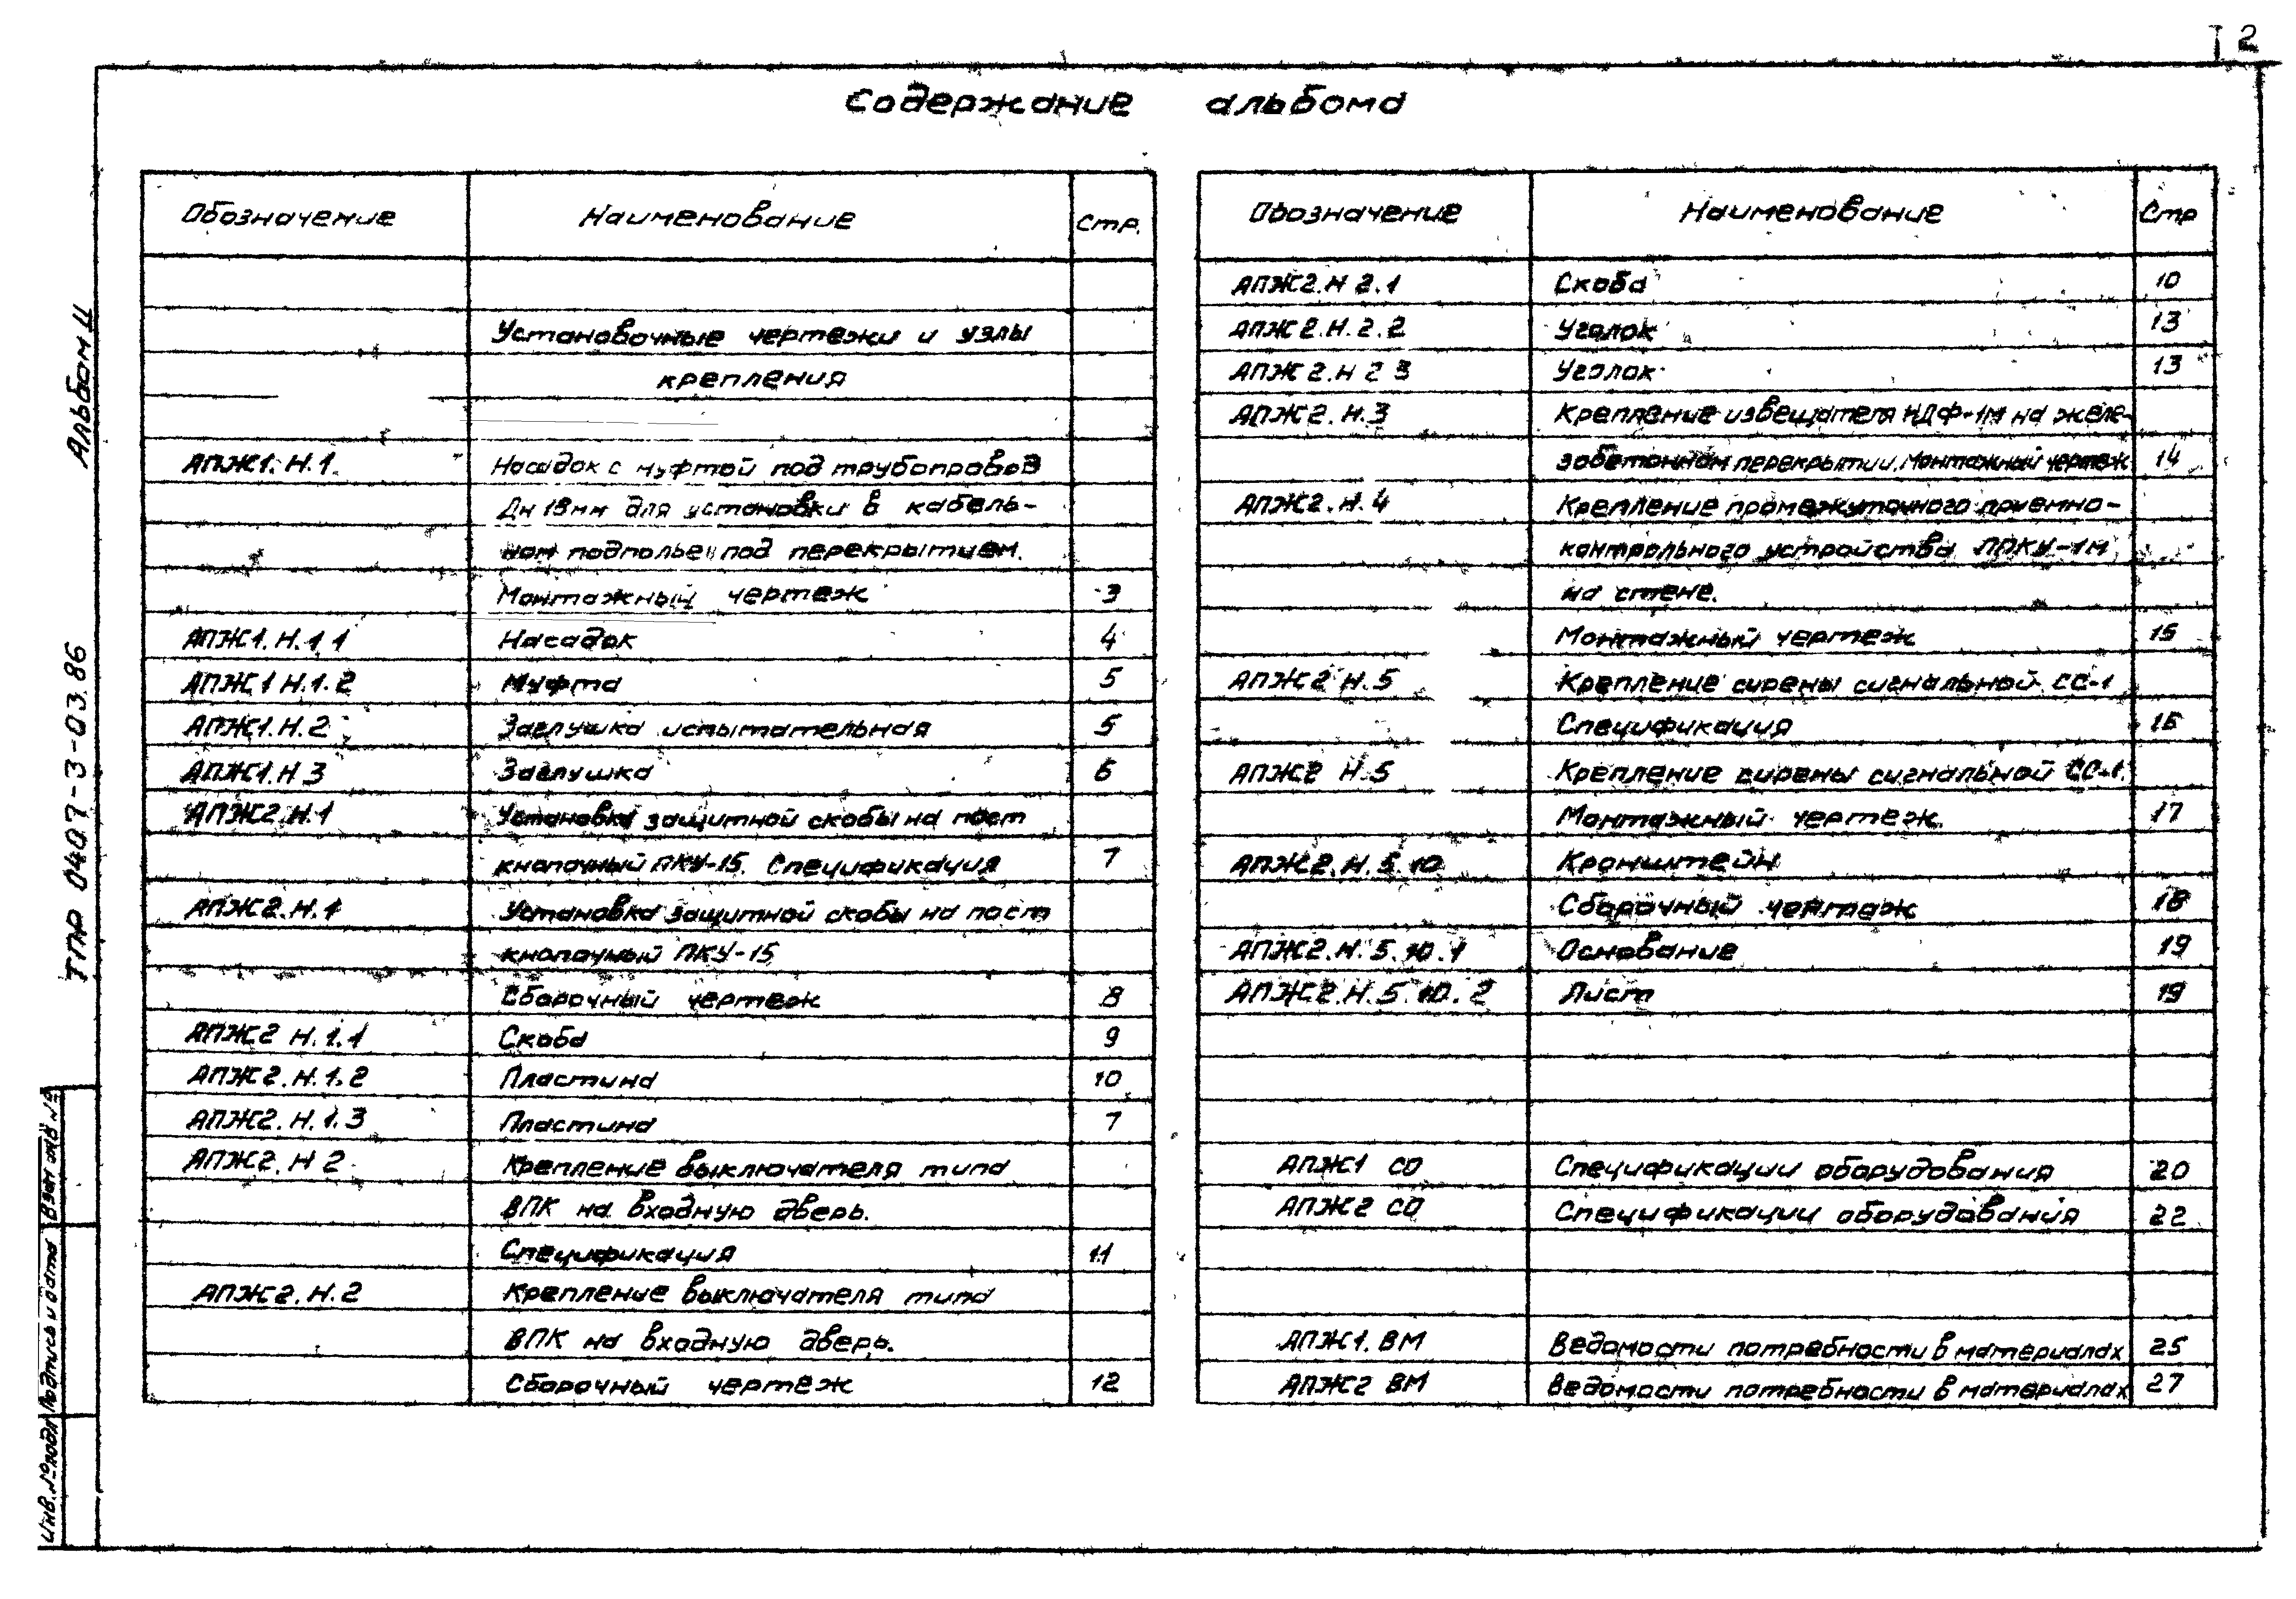 2
Содержание альбома
Обозначение Наименование Стр.
Установочные чертежи и узлы
крепления
АПЖ1.Н.1. Насадок с муфтой под трубопровод
Дн 18мм для установки в кабель-
ном подполье и под перекрытием.
Монтажный чертеж 3
АПЖ1.Н.1 1 Насадок 4
АПЖ1 Н.1.2 Муфта 5
АПЖ1.Н.2 Заглушка испытательная 5
АПЖ1.Н 3 Заглушка 6
АПЖ2.Н.1 Установка защитной скобы на пост
кнопочный ПКУ-15. Спецификация 7
АПЖ2.Н.1 Установка защитной скобы на пост
кнопочный ПКУ-15
Сборочный чертеж 8
АПЖ2 Н.1.1 Скоба 9
АПЖ2.Н.1.2 Пластина 10
АПЖ2.Н.1.3 Пластина 7
АПЖ2.Н 2 Крепление выключателя типа
ВПК на входную дверь.
Спецификация 11
АПЖ2.Н.2 Крепление выключателя типа
ВПК на входную дверь.
Сборочный чертеж 12
Обозначение Наименование Стр
АПЖ2.Н 2.1 Скоба 10
АПЖ2.Н.2.2 Уголок 13
АПЖ2.Н 2 3 Уголок 13
АПЖ2.Н.3 Крепление извещателя ИДФ-1М на желе-
зобетонном перекрытии. Монтажный чертеж 14
АПЖ2.Н.4 Крепление промежуточного приемно-
контрольного устройства ППКУ-1М
на стене.
Монтажный чертеж 15
АПЖ2 Н.5 Крепление сирены сигнальной СС-1
Спецификация 16
АПЖ2 Н.5 Крепление сирены сигнальной СС-1.
Монтажный чертеж. 17
АПЖ2.Н.5.10 Кронштейн
Сборочный чертеж 18
АПЖ2.Н.5.10.1 Основание 19
АПЖ2.Н.5.10.2 Лист 19
АПЖ1 СО Спецификации оборудования 20
АПЖ2 СО Спецификации оборудования 22
АПЖ1.ВМ Ведомости потребности в материалах 25
АПЖ2 ВМ Ведомости потребности в материалах 27
ТПР 0407-3-03.86 Альбом II
Инв.№подл Подпись и дата Взам инв №